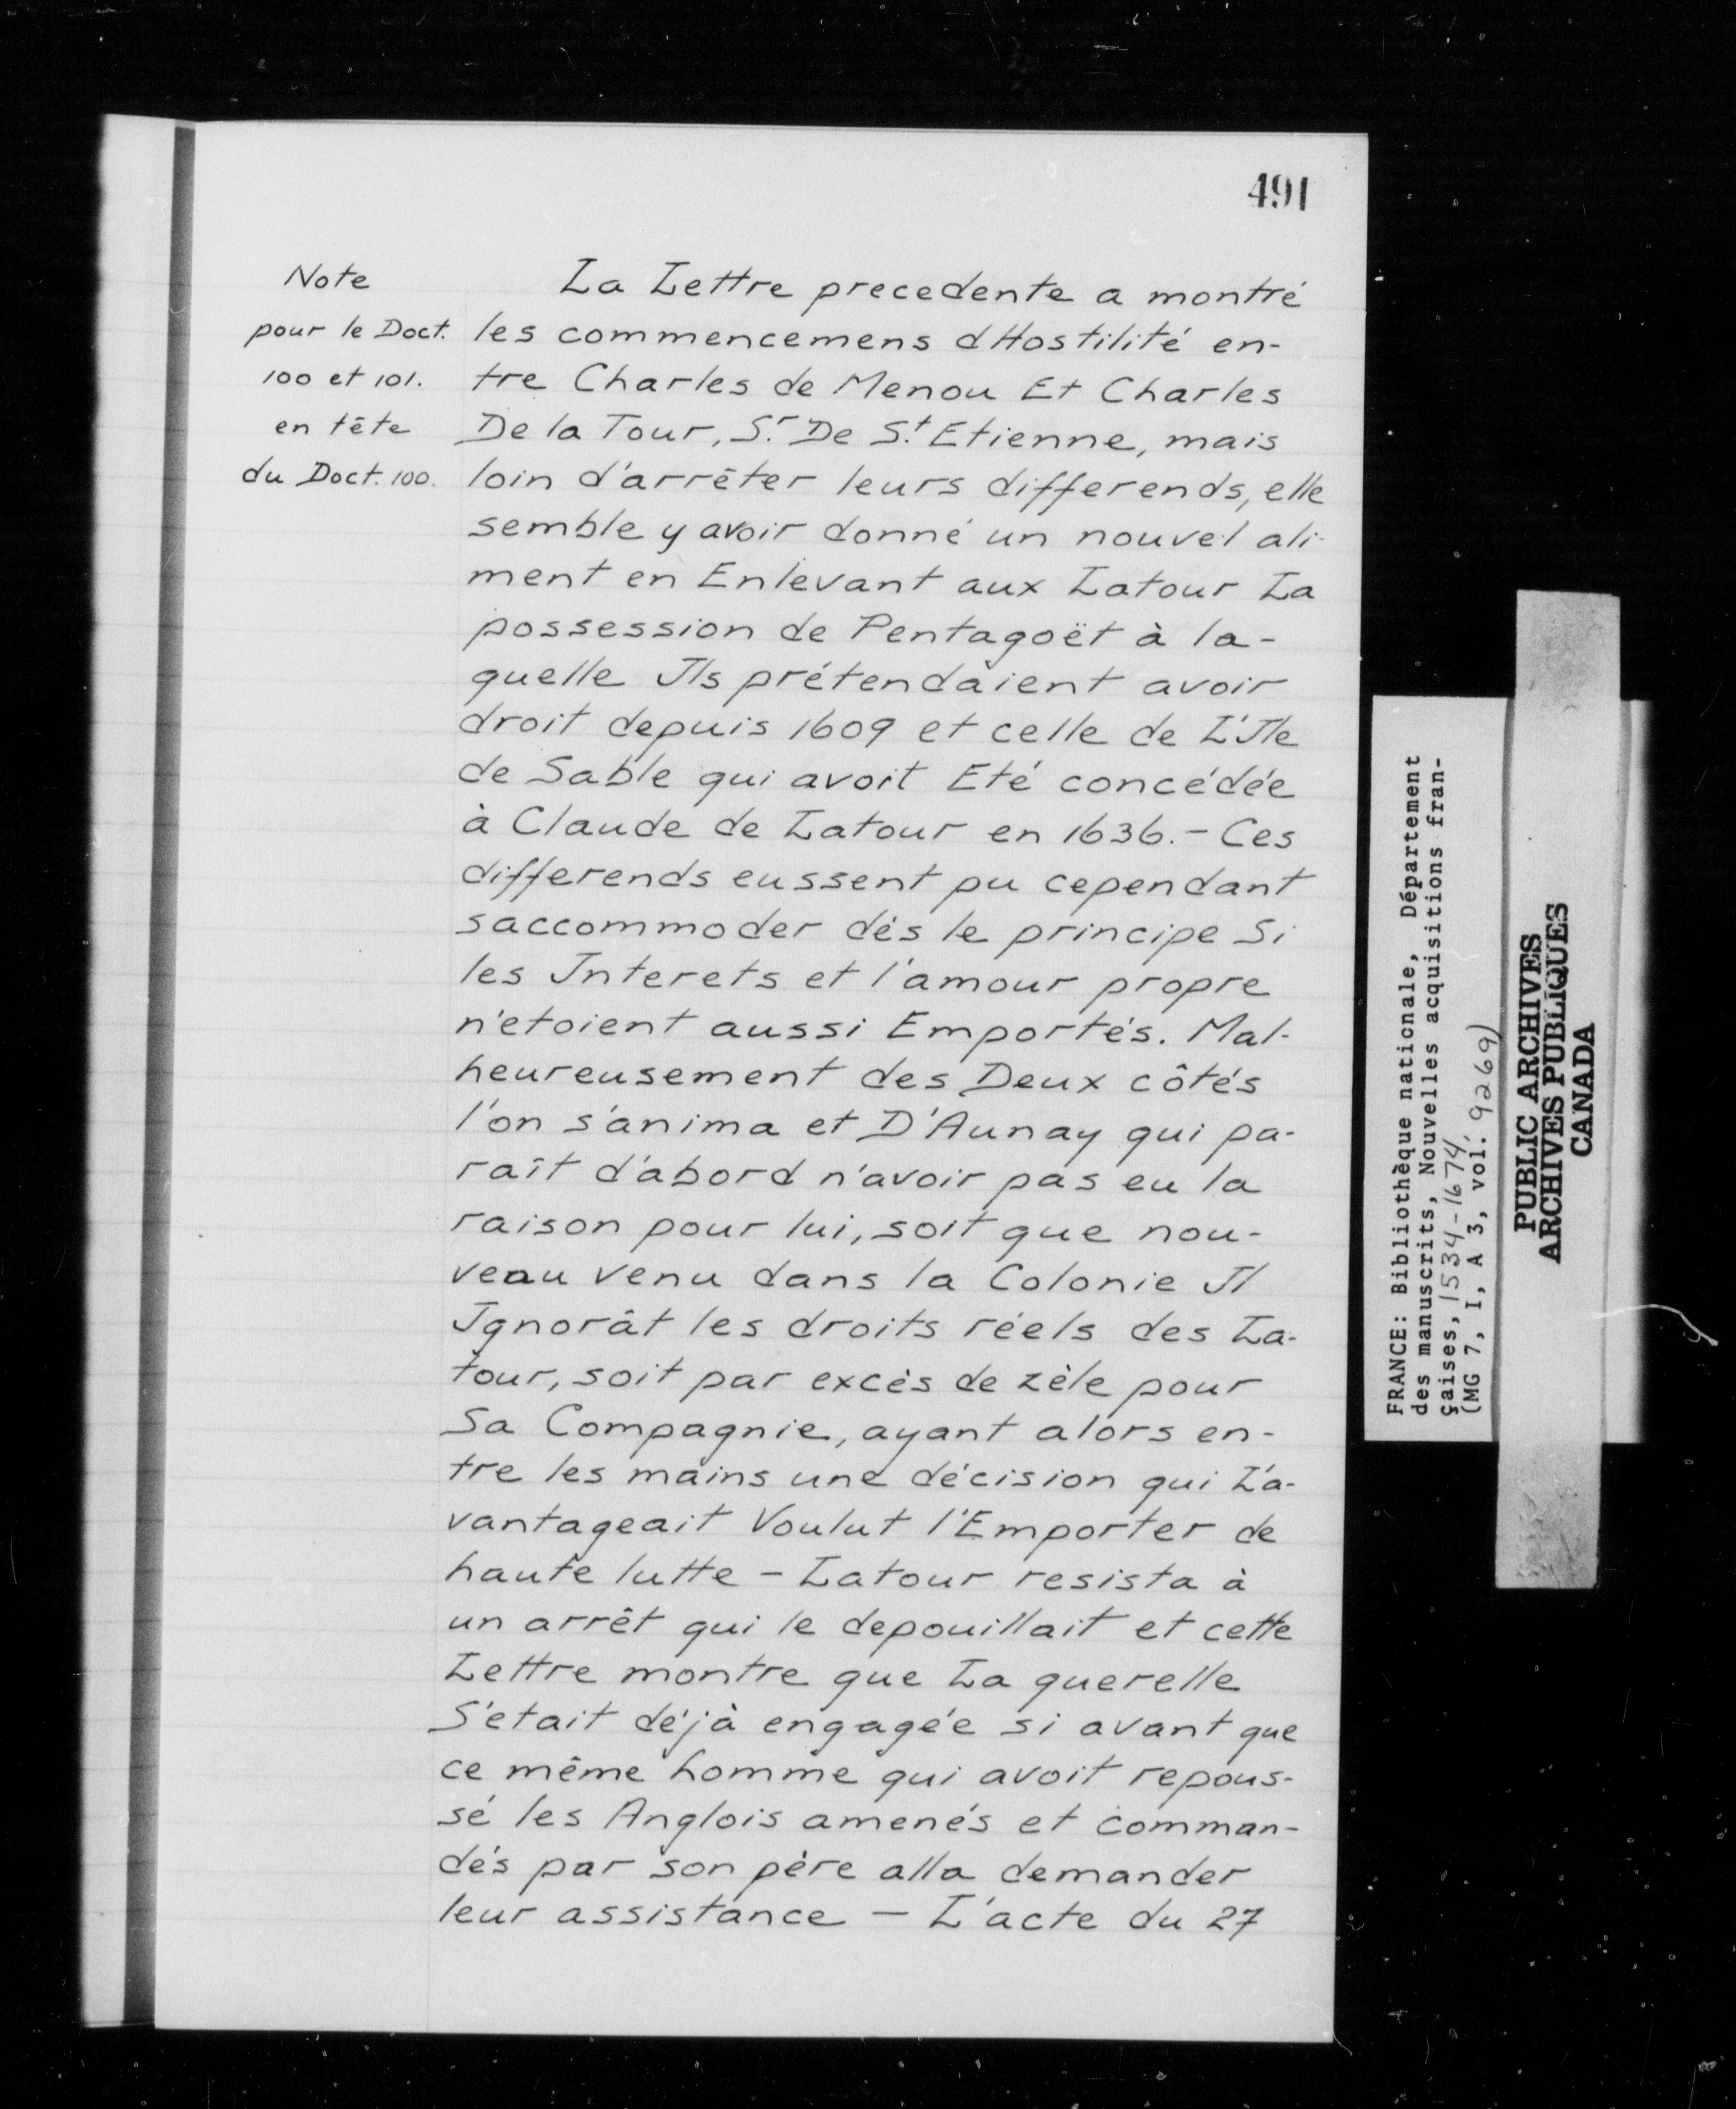 491
Note
pour le Doct.
100 et 101.
en tête
du Doct. 100.
La Lettre precedente a montré
les commencemens dHostilité en-
tre Charles de Menou Et Charles
De la Tour, Sr. De St. Etienne, mais
loin d'arrêter leurs differends, elle
semble y avoir donné un nouvel ali-
ment en Enlevant aux Latour La
possession de Pentagoët à la-
quelle Ils prétendaient avoir
droit depuis 1609 et celle de L'Ile
de Sable qui avoit Eté concédée
à Claude de Latour en 1636. - Ces
differends eussent pu cependant
saccommoder dés le principe Si
les Interets et l'amour propre
n'etoient aussi Emportés. Mal-
heureusement des Deux côtés
l'on s'anima et D'Aunay qui pa-
raît d'abord n'avoir pas eu la
raison pour lui, soit que nou-
veau venu dans la Colonie Il
Ignorât les droits réels des La-
tour, soit par excès de zèle pour
Sa Compagnie, ayant alors en-
tre les mains une décision qui L'a-
vantageait Voulut l'Emporter de
haute lutte - Latour resista à
un arrêt qui le depouillait et cette
Lettre montre que La querelle
S'etait déjà engagée si avant que
ce même homme qui avoit repous-
sé les Anglois amenés et comman-
dés par son père alla demander
leur assistance - L'acte du 27
FRANCE: Bibliothèque nationale, Département
des manuscrits, Nouvelles acquisitions fran-
çaises, 1534-1674
(MG 7, I, A 3, vol. 9269)
PUBLIC ARCHIVES
ARCHIVES PUBLIQUES
CANADA